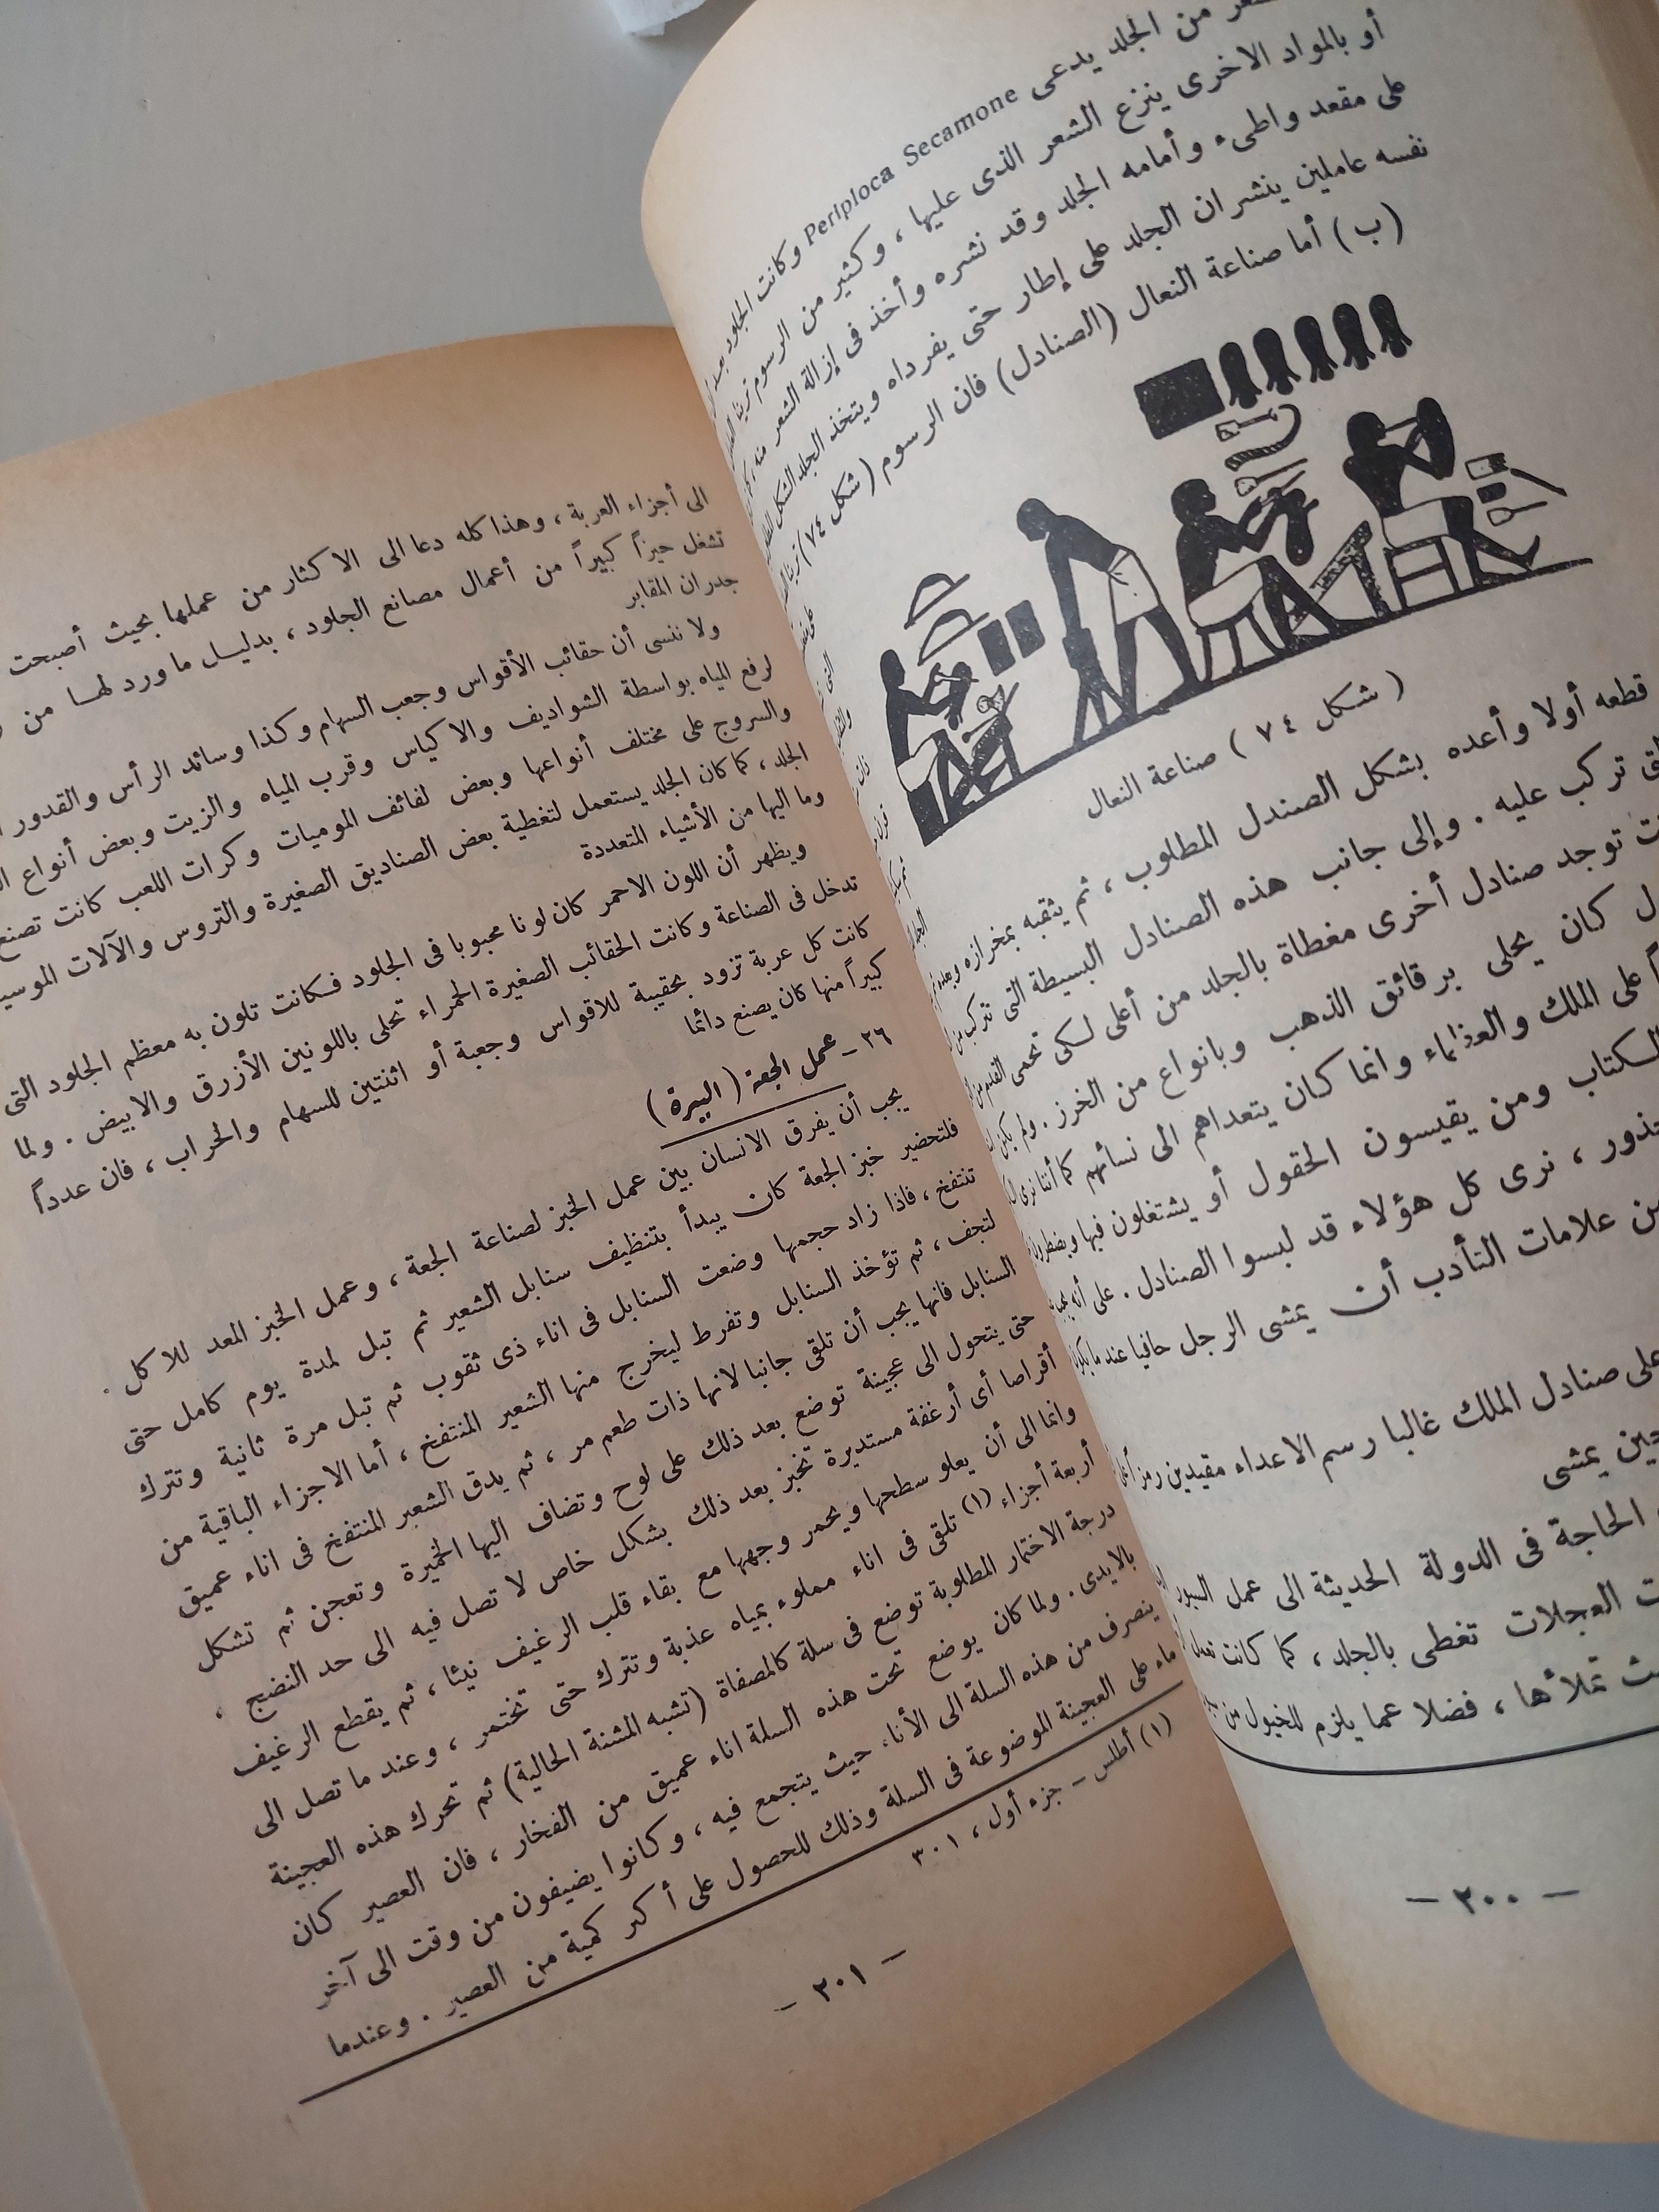 من الجلد يدعى Periploca Secamone وكانت الجلود بعد
أو بالمواد الاخرى ينزع الشعر الذى عليها ، وكثير من الرسوم ترينا
على مقعد واطىء وأمامه الجلد وقد نشره وأخذ فى إزالة الشعر منه
نفسه عاملين ينشران الجلد على إطار حتى يفرداه ويتخذ الجلد الشكل
(ب) أما صناعة النعال (الصنادل) فان الرسوم (شكل ٧٤) ترينا
(شكل ٧٤) صناعة النعال
قطعه أولا وأعده بشكل الصندل المطلوب ، ثم يثقبه بمخرازه وبعد
تركب عليه . وإلى جانب هذه الصنادل البسيطة التى تتركب من
توجد صنادل أخرى مغطاة بالجلد من أعلى لكى تحمى القدم من
كان يحلى برقائق الذهب وبانواع من الخرز . ولم يكن
على الملك والعظماء وانما كان يتعداهم الى نسائهم كما أننا نرى
الكتاب ومن يقيسون الحقول أو يشتغلون فيها ويضطرون
نرى كل هؤلاء قد لبسوا الصنادل . على أنه
من علامات التأدب أن يمشى الرجل حافيا عند ما يكون
على صنادل الملك غالبا رسم الاعداء مقيدين رمزا
حين يمشى
الحاجة فى الدولة الحديثة الى عمل السيور
العجلات تغطى بالجلد ، كما كانت
تملأها ، فضلا عما يلزم للخيول من
— ٣٠٠ —
الى أجزاء العربة ، وهذا كله دعا الى الاكثار من عملها بحيث أصبحت
تشغل حيزاً كبيراً من أعمال مصانع الجلود ، بدليل ما ورد لها من
جدران المقابر
ولا ننسى أن حقائب الأقواس وجعب السهام وكذا وسائد الرأس والقدور
لرفع المياه بواسطة الشواديف والاكياس وقرب المياه والزيت وبعض أنواع
والسروج على مختلف أنواعها وبعض لفائف الموميات وكرات اللعب كانت تصنع
الجلد ، كما كان الجلد يستعمل لتغطية بعض الصناديق الصغيرة والتروس والآلات
وما اليها من الأشياء المتعددة
ويظهر أن اللون الاحمر كان لونا محبوبا فى الجلود فكانت تلون به معظم الجلود التى
تدخل فى الصناعة وكانت الحقائب الصغيرة الحمراء تحلى باللونين الأزرق والابيض . ولما
كانت كل عربة تزود بحقيبة للاقواس وجعبة أو اثنتين للسهام والحراب ، فان عدداً
كبيراً منها كان يصنع دائما
٢٦ - عمل الجعة (البيرة)
يجب أن يفرق الانسان بين عمل الخبز لصناعة الجعة ، وعمل الخبز المعد للاكل .
فلتحضير خبز الجعة كان يبدأ بتنظيف سنابل الشعير ثم تبل لمدة يوم كامل حتى
تنتفخ ، فاذا زاد حجمها وضعت السنابل فى اناء ذى ثقوب ثم تبل مرة ثانية وتترك
لتجف ، ثم تؤخذ السنابل وتفرط ليخرج منها الشعير المنتفخ ، أما الاجزاء الباقية من
السنابل فانها يجب أن تلقى جانبا لانها ذات طعم مر ، ثم يدق الشعير المنتفخ فى اناء عميق
حتى يتحول الى عجينة توضع بعد ذلك على لوح وتضاف اليها الخميرة وتعجن ثم تشكل
أقراصا أى أرغفة مستديرة تخبز بعد ذلك بشكل خاص لا تصل فيه الى حد النضج ،
وانما الى أن يعلو سطحها ويحمر وجهها مع بقاء قلب الرغيف نيئا ، ثم يقطع الرغيف
أربعة أجزاء (١) تلقى فى اناء مملوء بمياه عذبة وتترك حتى تختمر ، وعند ما تصل الى
درجة الاختمار المطلوبة توضع فى سلة كالمصفاة (تشبه المشنة الحالية) ثم تحرك هذه العجينة
بالايدى . ولما كان يوضع تحت هذه السلة اناء عميق من الفخار ، فان العصير كان
ينصرف من هذه السلة الى الأناء حيث يتجمع فيه ، وكانوا يضيفون من وقت الى آخر
ماء على العجينة الموضوعة فى السلة وذلك للحصول على أكبر كمية من العصير . وعندما
(١) أطلس - جزء أول ، ٣٠١
— ٣٠١ —